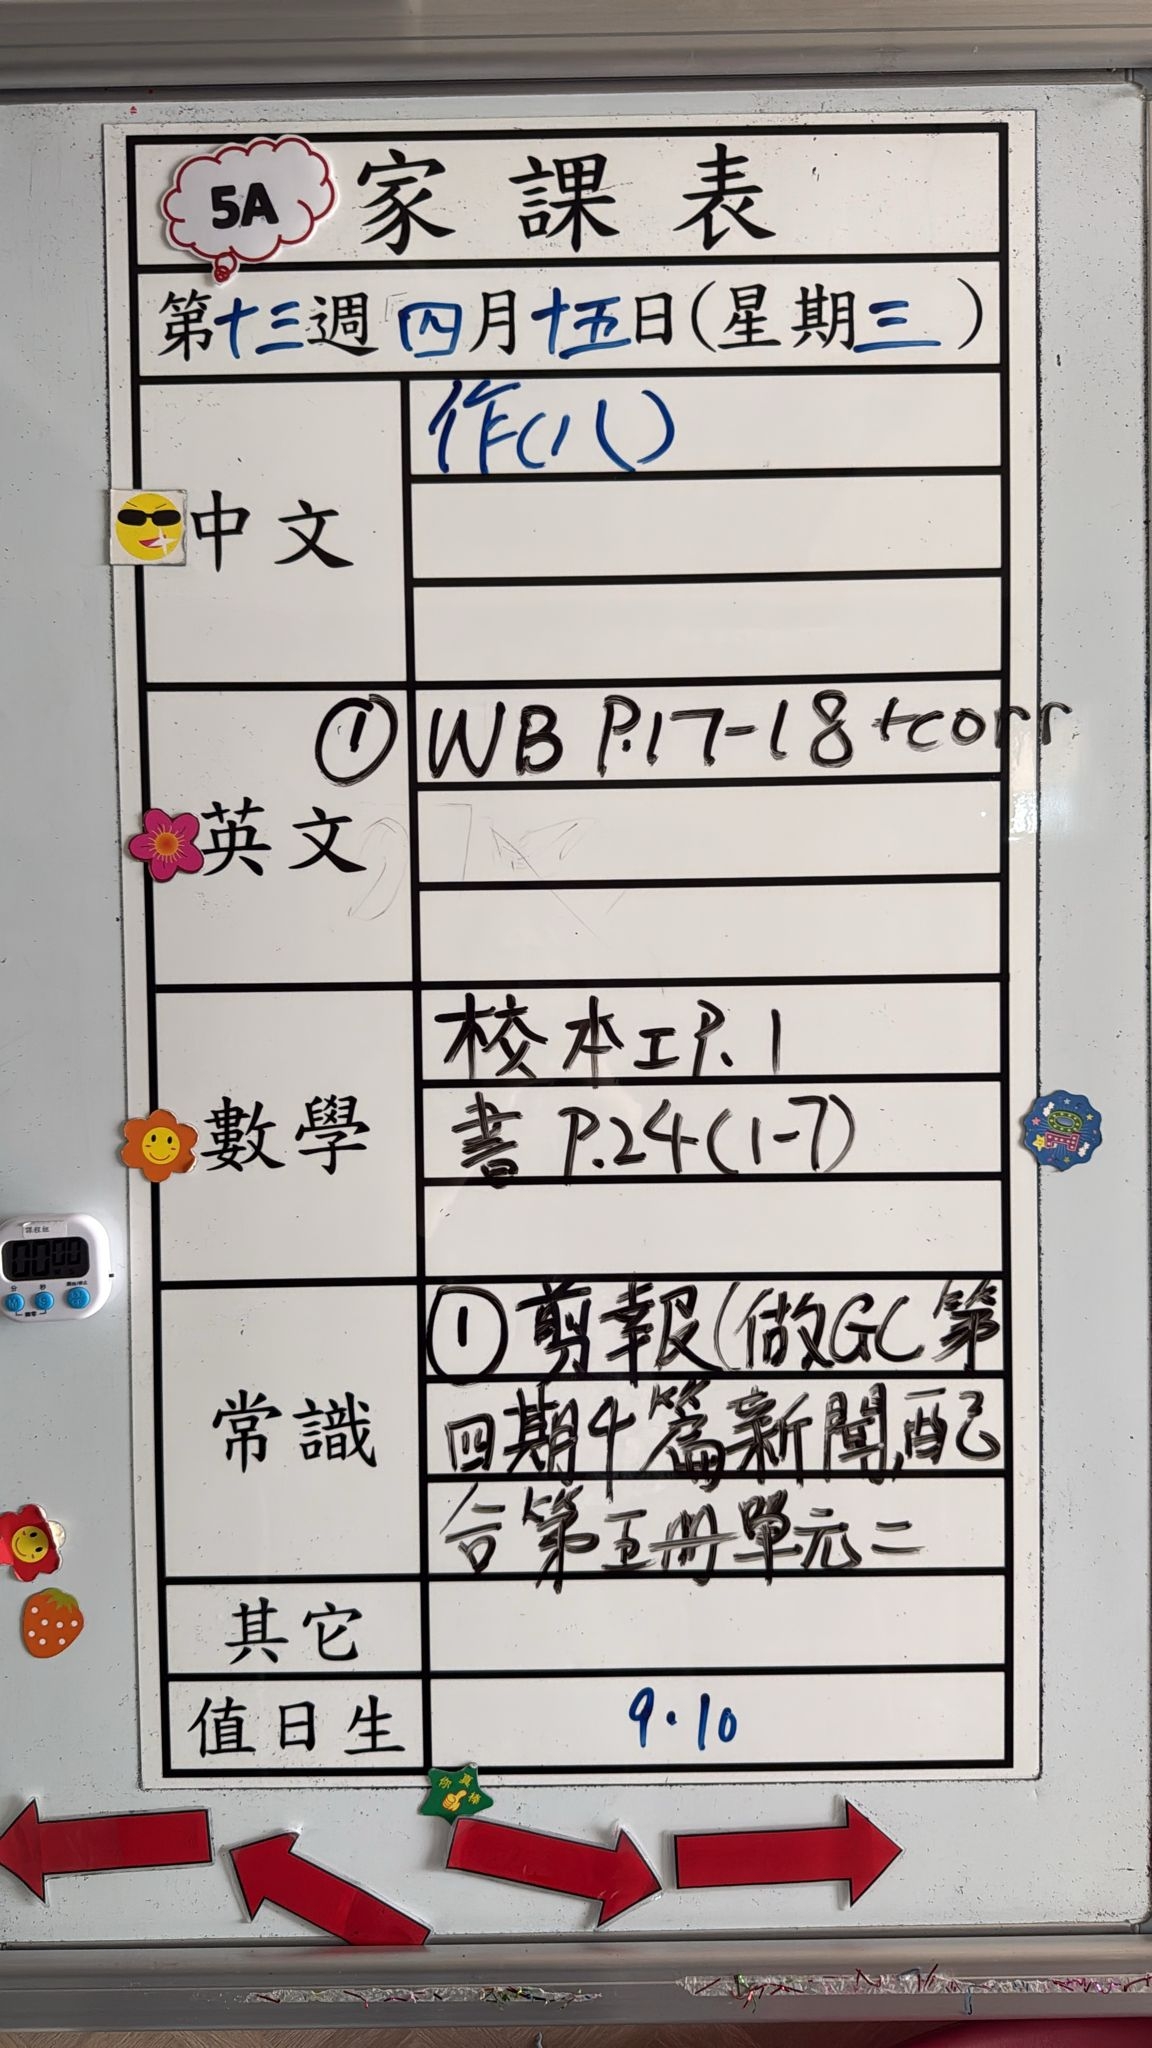 5A 家課表
第十三週 四月十五日(星期三)
中文
作(八)
英文
① WB P.17-18 +corr
數學
校本工P.1
書 P.24(1-7)
常識
① 剪報(做GC第
四期4篇新聞,配
合第五冊單元二
其它
值日生
9.10
課程組
00:00
你真棒